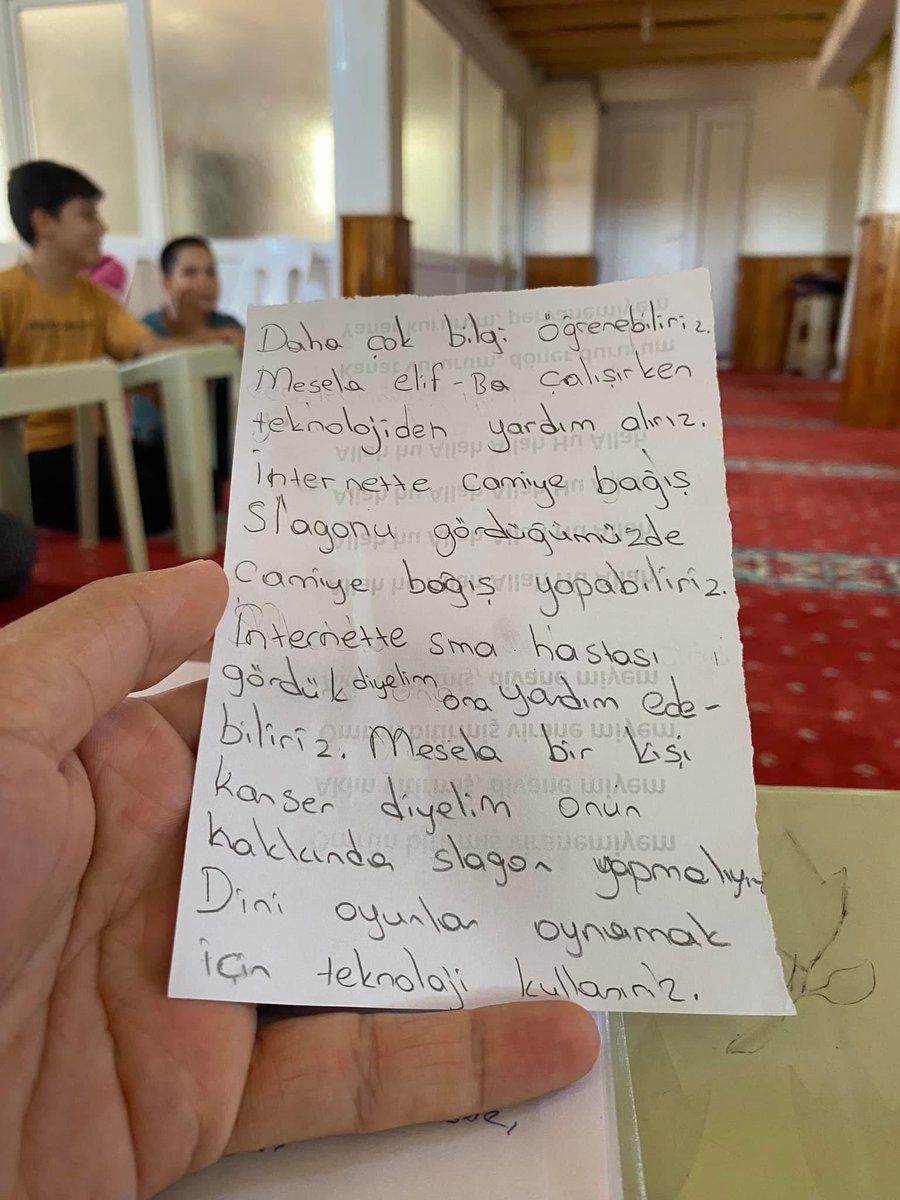 Daha çok bilgi öğrenebiliriz.
Mesela elif-Ba çalışırken
teknolojiden yardım alırız.
İnternette camiye bağış
Slagonu gördüğümüzde
Camiye bağış yapabiliriz.
İnternette sma hastası
gördük diyelim ona yardım ede-
biliriz. Mesela bir kişi
kanser diyelim onun
hakkında slagon yapmalıyız
Dini oyunlar oynamak
için teknoloji kullanırız.